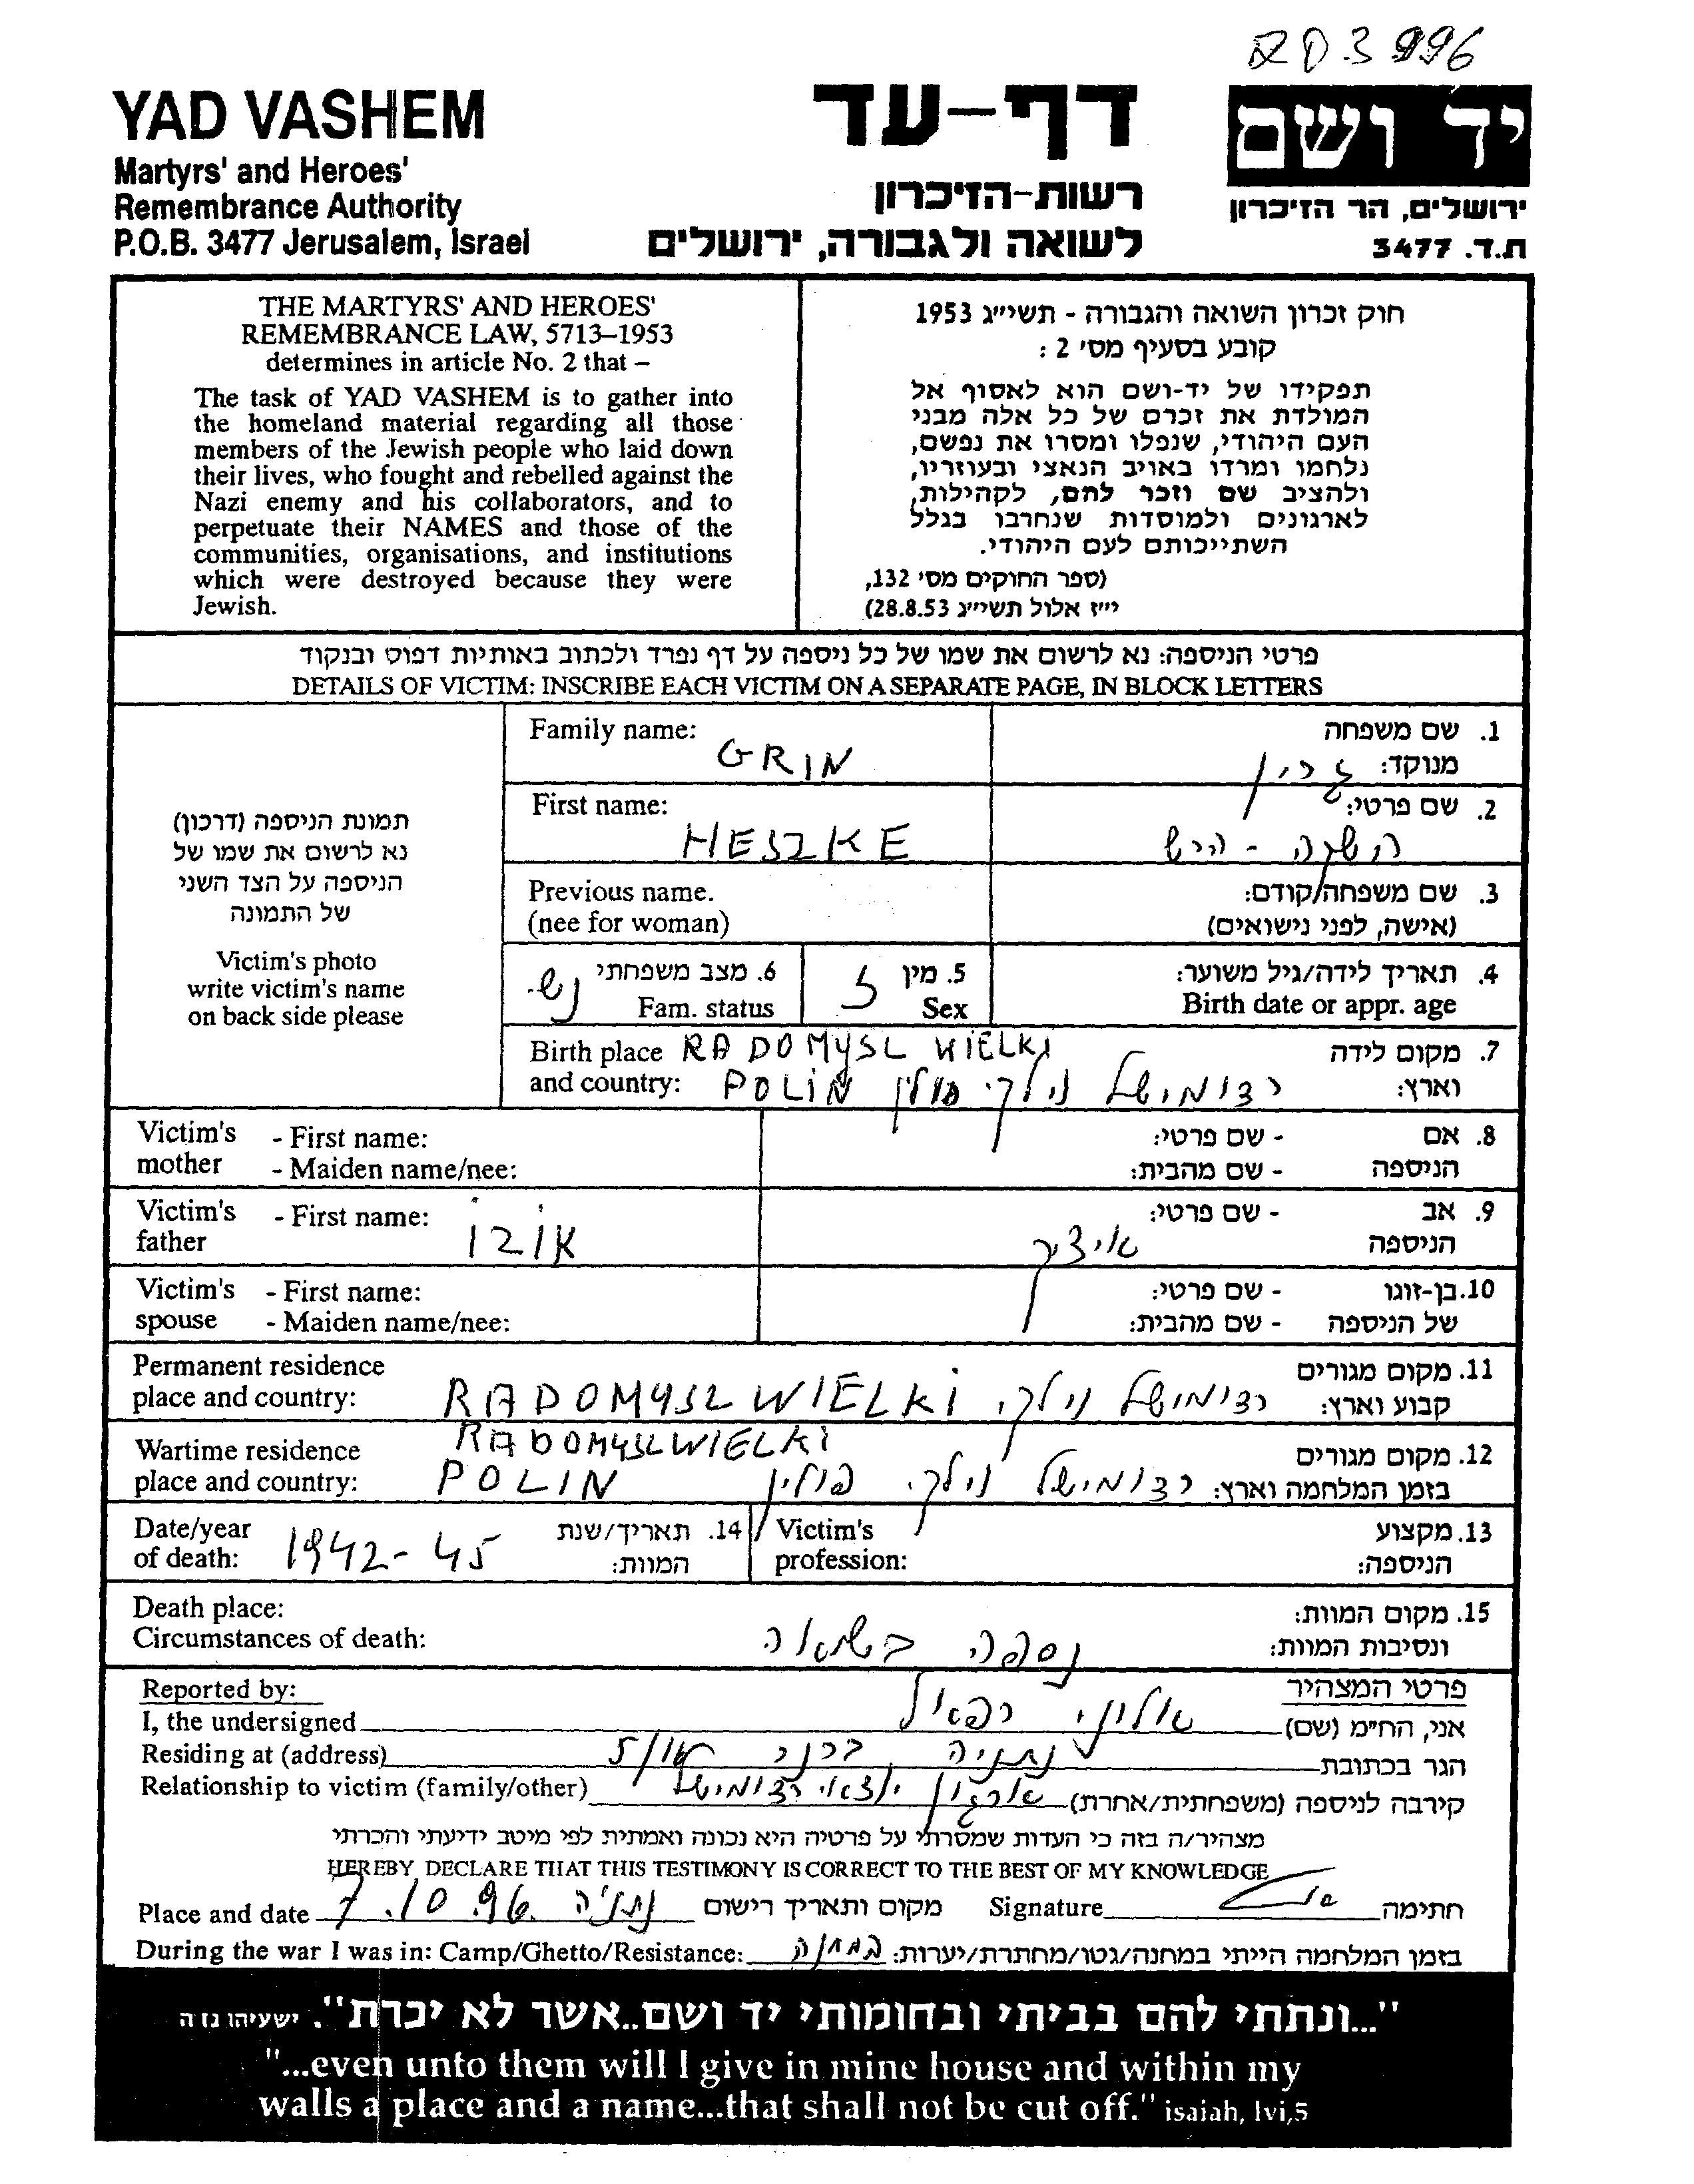 203996
YAD VASHEM
Martyrs' and Heroes'
Remembrance Authority
P.O.B. 3477 Jerusalem, Israel
דף-עד
רשות-הזיכרון
לשואה ולגבורה, ירושלים
יד ושם
ירושלים, הר הזיכרון
ת.ד. 3477
THE MARTYRS' AND HEROES'
REMEMBRANCE LAW, 5713-1953
determines in article No. 2 that –
The task of YAD VASHEM is to gather into
the homeland material regarding all those
members of the Jewish people who laid down
their lives, who fought and rebelled against the
Nazi enemy and his collaborators, and to
perpetuate their NAMES and those of the
communities, organisations, and institutions
which were destroyed because they were
Jewish.
חוק זכרון השואה והגבורה - תשי"ג 1953
קובע בסעיף מס' 2 :
תפקידו של יד-ושם הוא לאסוף אל
המולדת את זכרם של כל אלה מבני
העם היהודי, שנפלו ומסרו את נפשם,
נלחמו ומרדו באויב הנאצי ובעוזריו,
ולהציב שם וזכר להם, לקהילות,
לארגונים ולמוסדות שנחרבו בגלל
השתייכותם לעם היהודי.
(ספר החוקים מס' 132,
י"ז אלול תשי"ג 28.8.53)
פרטי הניספה: נא לרשום את שמו של כל ניספה על דף נפרד ולכתוב באותיות דפוס ובנקוד
DETAILS OF VICTIM: INSCRIBE EACH VICTIM ON A SEPARATE PAGE, IN BLOCK LETTERS
תמונת הניספה (דרכון)
נא לרשום את שמו של
הניספה על הצד השני
של התמונה
Victim's photo
write victim's name
on back side please
Family name: GRIN
1. שם משפחה
מנוקד: גרין
First name: HESZKE
2. שם פרטי:
השקה - הרש
Previous name.
(nee for woman)
3. שם משפחה/קודם:
(אישה, לפני נישואים)
6. מצב משפחתי נש.
Fam. status
5. מין ז
Sex
4. תאריך לידה/גיל משוער:
Birth date or appr. age
Birth place RADOMYSL WIELKI
and country: POLIN
7. מקום לידה
וארץ: רדומישל וילקי פולין
Victim's mother - First name:
- Maiden name/nee:
8. אם הניספה - שם פרטי:
- שם מהבית:
Victim's father - First name: IZIK
9. אב הניספה - שם פרטי: איציק
Victim's spouse - First name:
- Maiden name/nee:
10. בן-זוגו של הניספה - שם פרטי:
- שם מהבית:
Permanent residence
place and country: RADOMYSL WIELKI
11. מקום מגורים
קבוע וארץ: רדומישל וילקי.
Wartime residence RADOMYSL WIELKI
place and country: POLIN
12. מקום מגורים
בזמן המלחמה וארץ: רדומישל וילקי. פולין
Date/year
of death: 1942-45
14. תאריך/שנת
המוות:
Victim's
profession:
13. מקצוע
הניספה:
Death place:
Circumstances of death:
15. מקום המוות:
ונסיבות המוות: נספה בשואה
Reported by:
פרטי המצהיר
I, the undersigned אלוני רפאל אני, הח"מ (שם)
Residing at (address) נתניה ברנר 5/14 הגר בכתובת
Relationship to victim (family/other) ארגון יוצאי רדומישל קירבה לניספה (משפחתית/אחרת)
מצהיר/ה בזה כי העדות שמסרתי על פרטיה היא נכונה ואמתית לפי מיטב ידיעתי והכרתי
HEREBY DECLARE THAT THIS TESTIMONY IS CORRECT TO THE BEST OF MY KNOWLEDGE
Place and date 7.10.96. נתניה מקום ותאריך רישום Signature חתימה
During the war I was in: Camp/Ghetto/Resistance: במחנה בזמן המלחמה הייתי במחנה/גטו/מחתרת/יערות:
"...ונתתי להם בביתי ובחומותי יד ושם..אשר לא יכרת". ישעיהו נז ה
"...even unto them will I give in mine house and within my
walls a place and a name...that shall not be cut off." isaiah, lvi,5